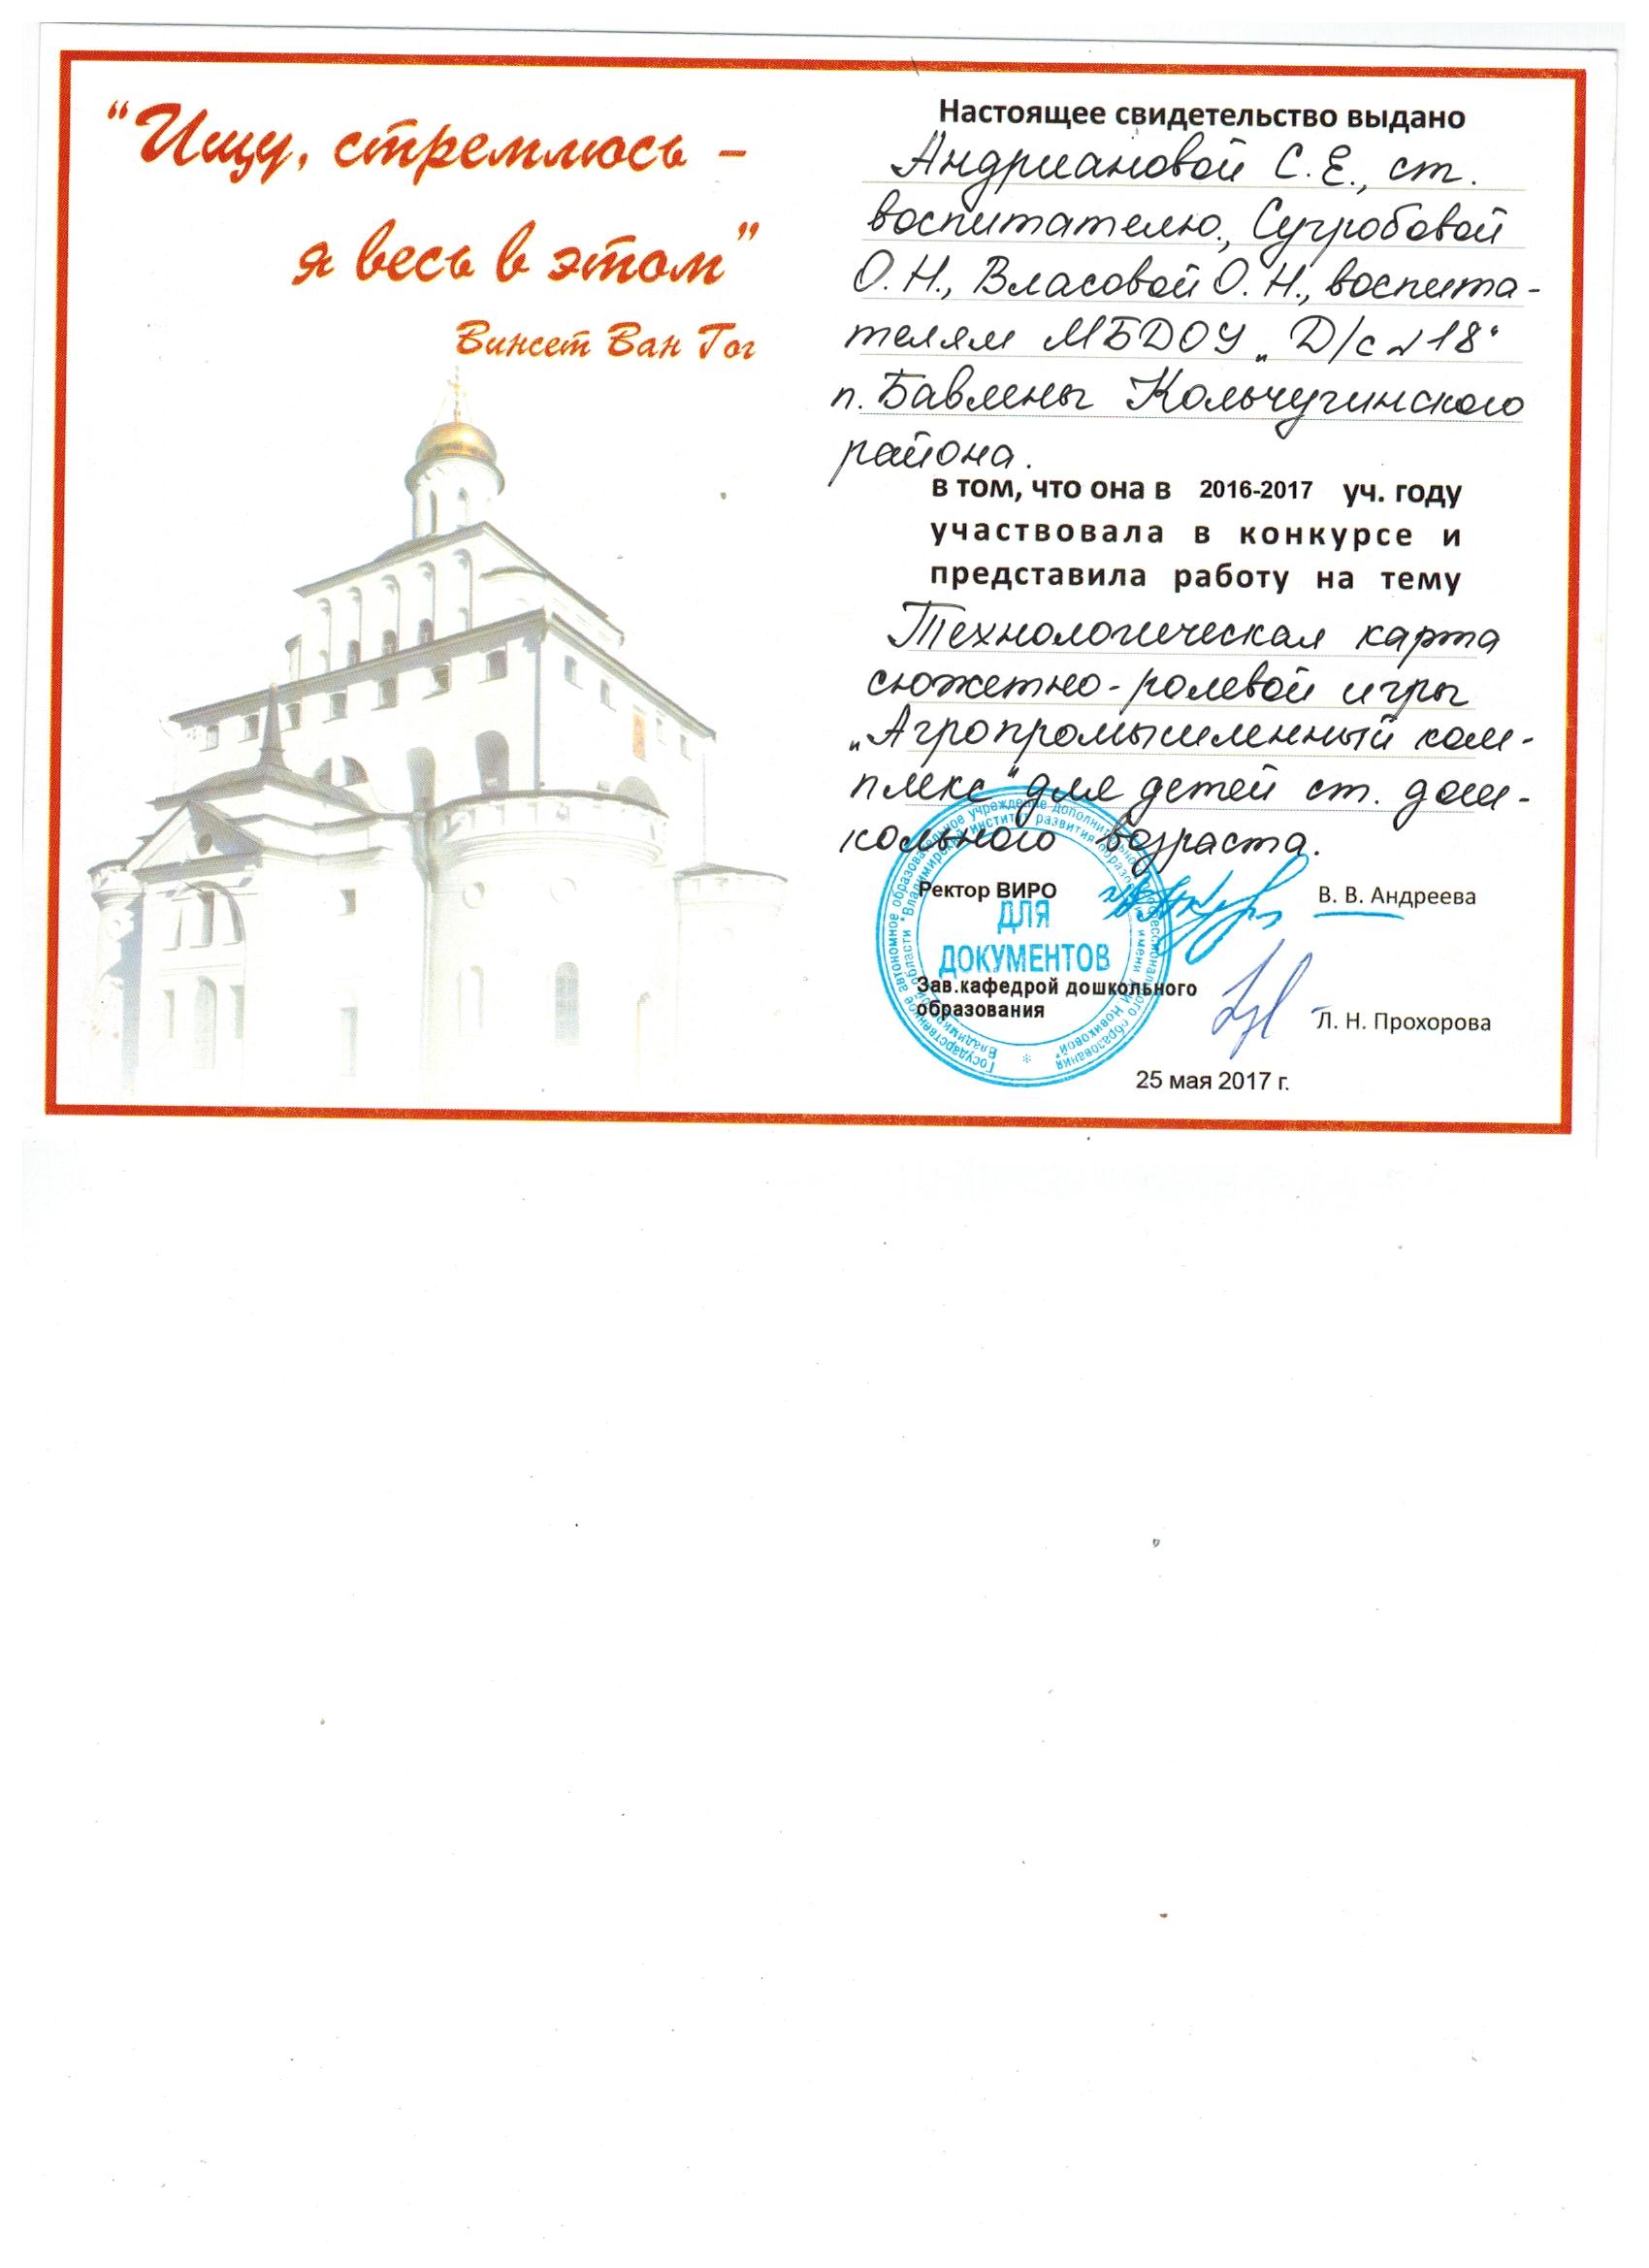 “Ищу, стремлюсь –
я весь в этом”
Винсет Ван Гог
Настоящее свидетельство выдано
Андриановой С.Е., ст.
воспитателю., Сугробовой
О.Н., Власовой О.Н., воспита-
телям МБДОУ „Д/с №18“
п. Бавлены Кольчугинского
района.
в том, что она в 2016-2017 уч. году
участвовала в конкурсе и
представила работу на тему
Технологическая карта
сюжетно-ролевой игры
„Агропромышленный ком-
плекс“ для детей ст. дош-
кольного возраста.
Ректор ВИРО
В. В. Андреева
ДЛЯ
ДОКУМЕНТОВ
Зав.кафедрой дошкольного
образования
Л. Н. Прохорова
25 мая 2017 г.
Государственное автономное образовательное учреждение дополнительного профессионального образования
Владимирской области "Владимирский институт развития образования имени Л.И. Новиковой"